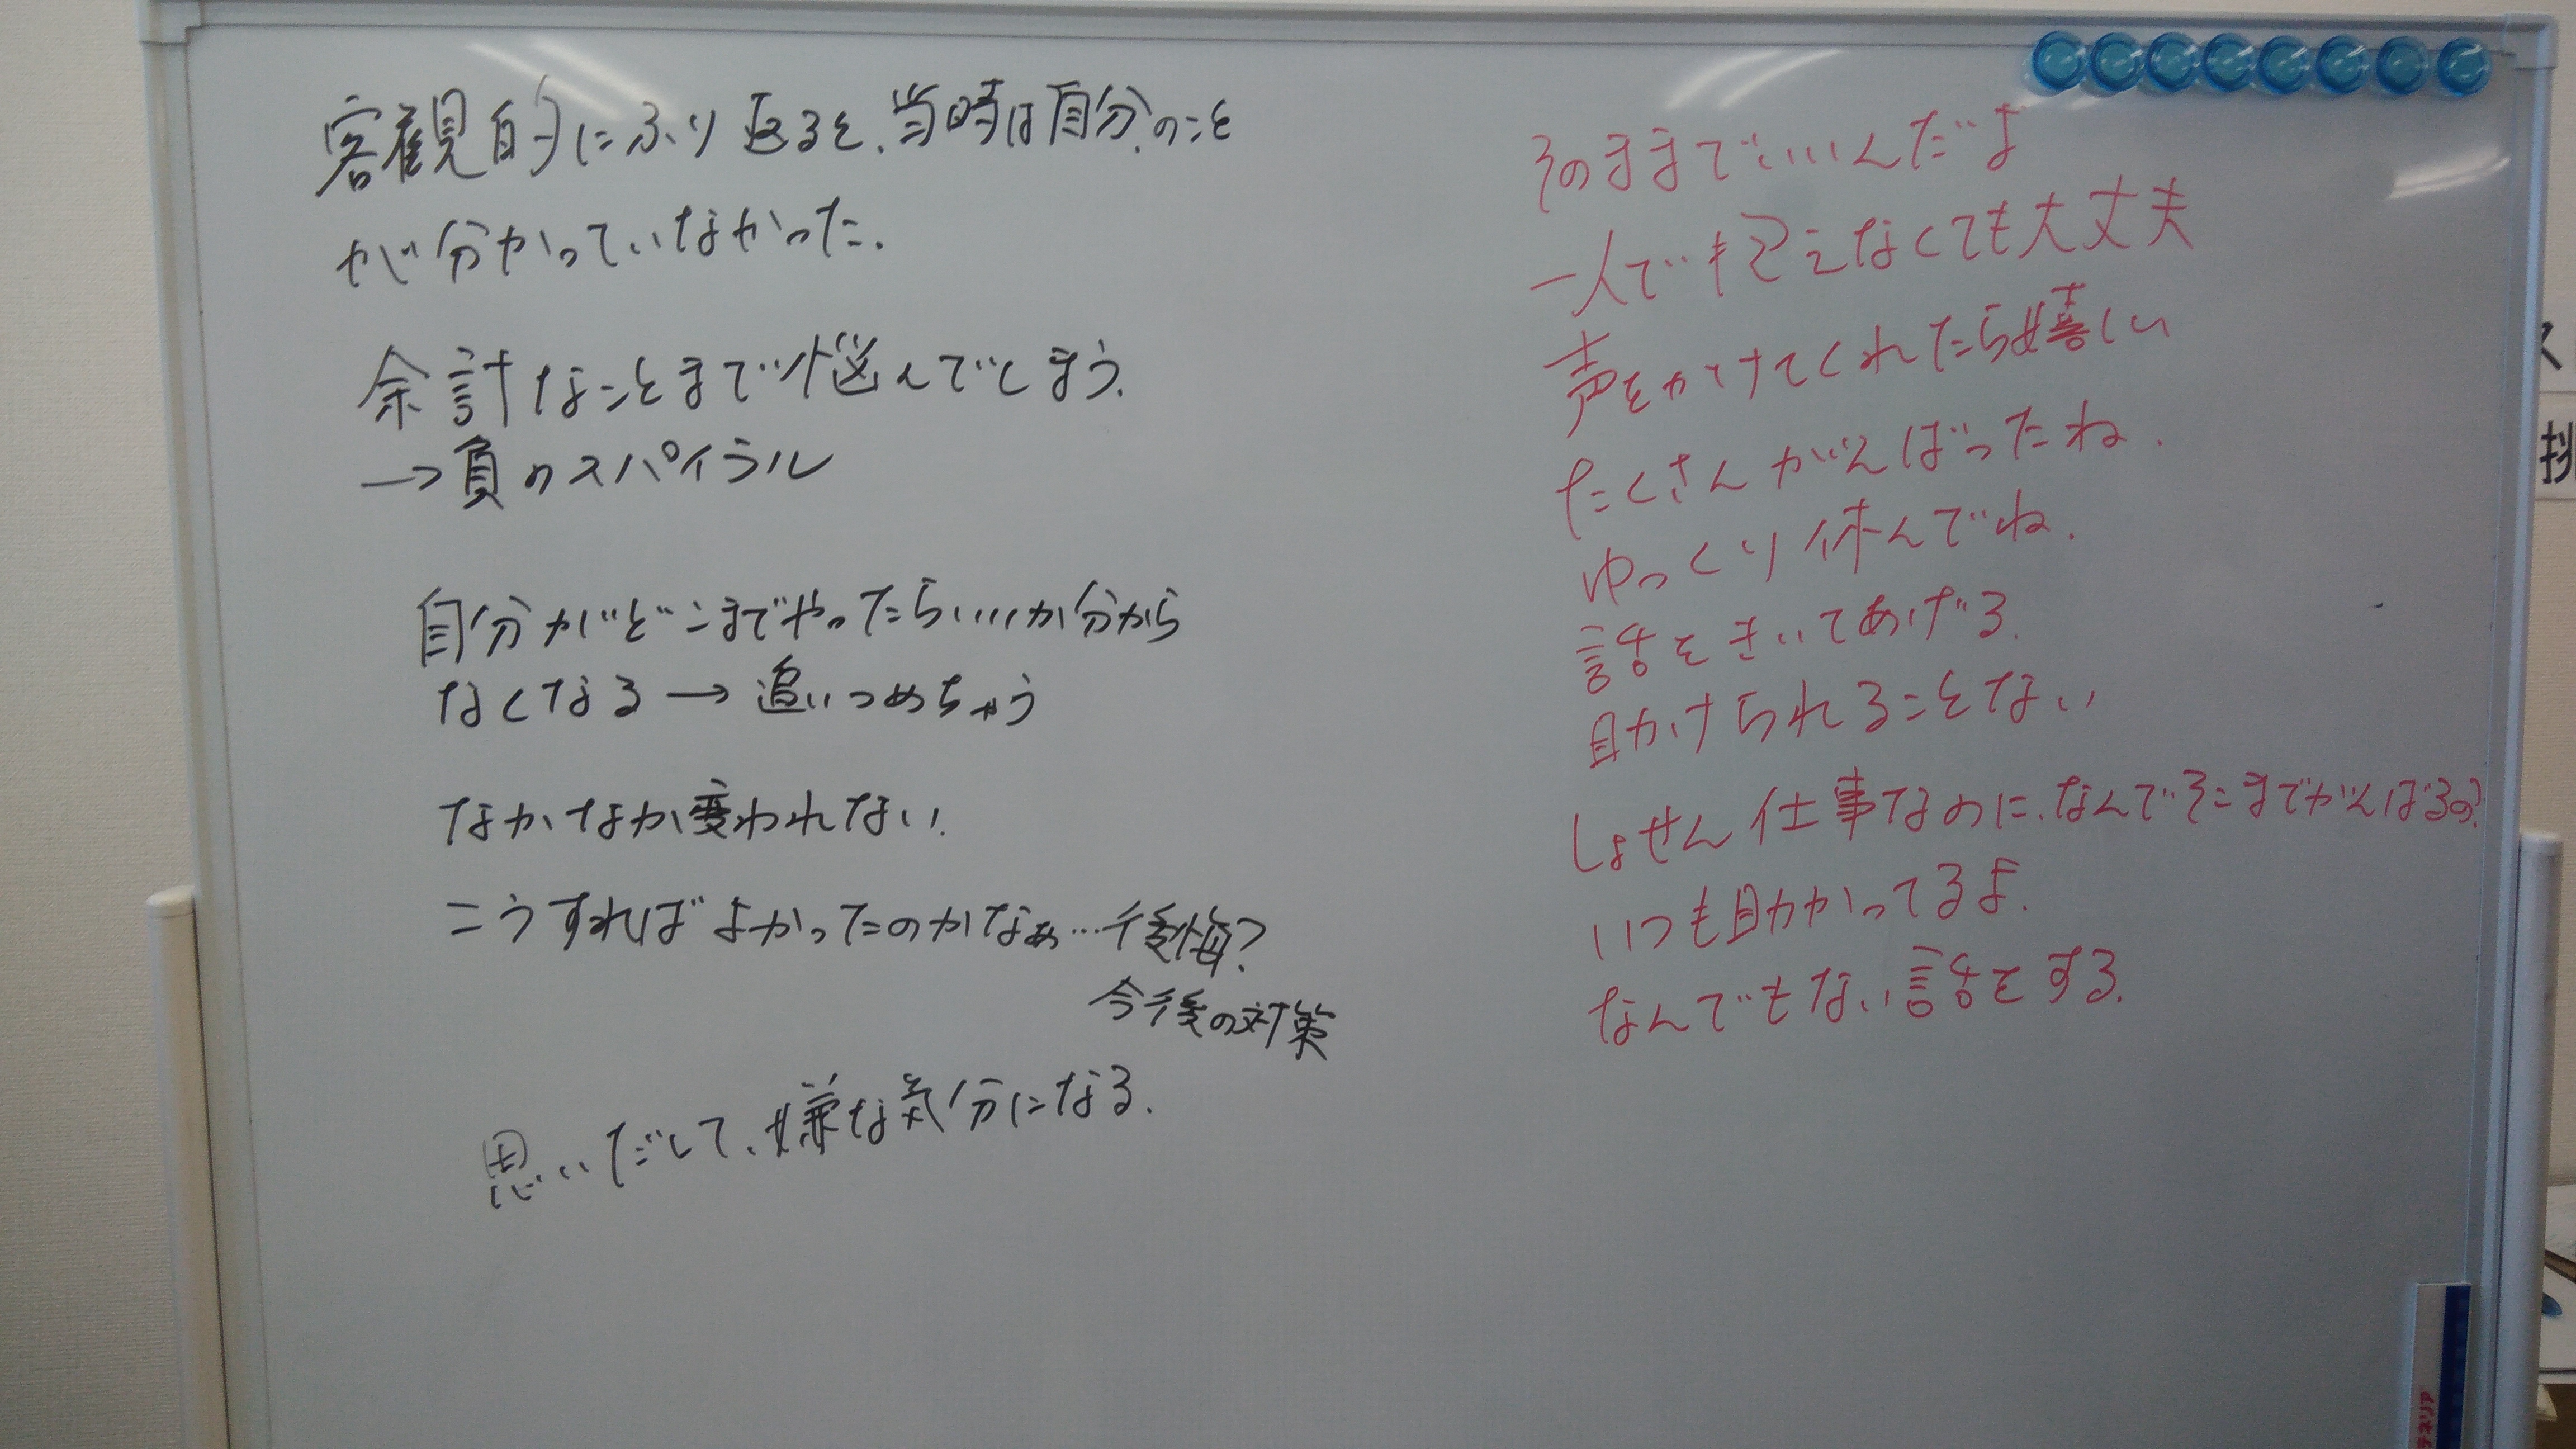 客観的にふり返ると、当時は自分のこと
が分かっていなかった.
余計なことまで悩んでしまう.
→負のスパイラル
自分がどこまでやったらいいか分から
なくなる→追いつめちゃう
なかなか変われない.
こうすればよかったのかなぁ…後悔?
今後の対策
思いだして、嫌な気分になる.
そのままでいいんだよ
一人で抱えなくても大丈夫
声をかけてくれたら嬉しい
たくさんがんばったね.
ゆっくり休んでね.
話をきいてあげる.
助けられることない
しょせん仕事なのに、なんでそこまでがんばるの?
いつも助かってるよ.
なんでもない話をする.
ス
挑